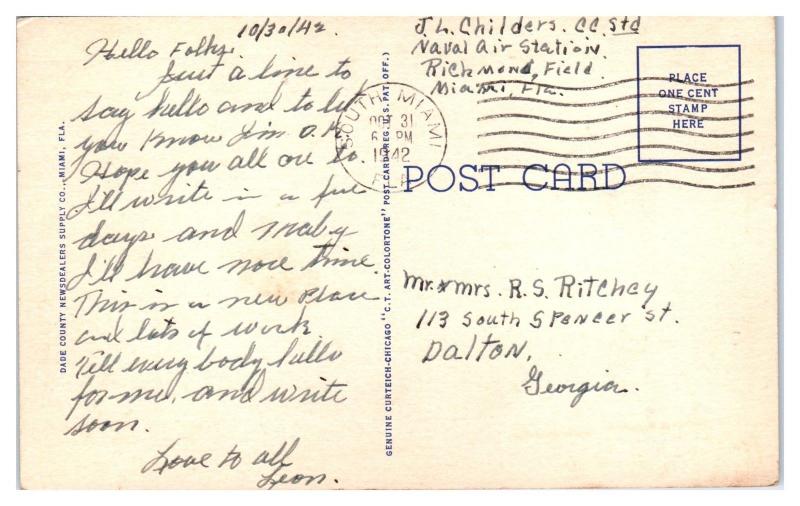 10/30/42.
Hello Folks.
Just a line to
say hello and to let
you know I'm O.K.
Hope you all are to.
I'll write in a few
days and maby
I'll have more time.
This is a new place
and lots of work.
Tell every body hello
for me, and write
soon.
Love to all
Leon.
DADE COUNTY NEWSDEALERS SUPPLY CO., MIAMI, FLA.
GENUINE CURTEICH-CHICAGO "C.T. ART-COLORTONE" POST CARD (REG. U.S. PAT. OFF.)
J. L. Childers. CC. Std
Naval Air Station.
Richmond, Field.
Miami, Fla.
SOUTH MIAMI
OCT 31
6 PM
1942
FLA
PLACE
ONE CENT
STAMP
HERE
POST CARD
Mr. & Mrs. R. S. Ritchey
113 South Spencer st.
Dalton,
Georgia.